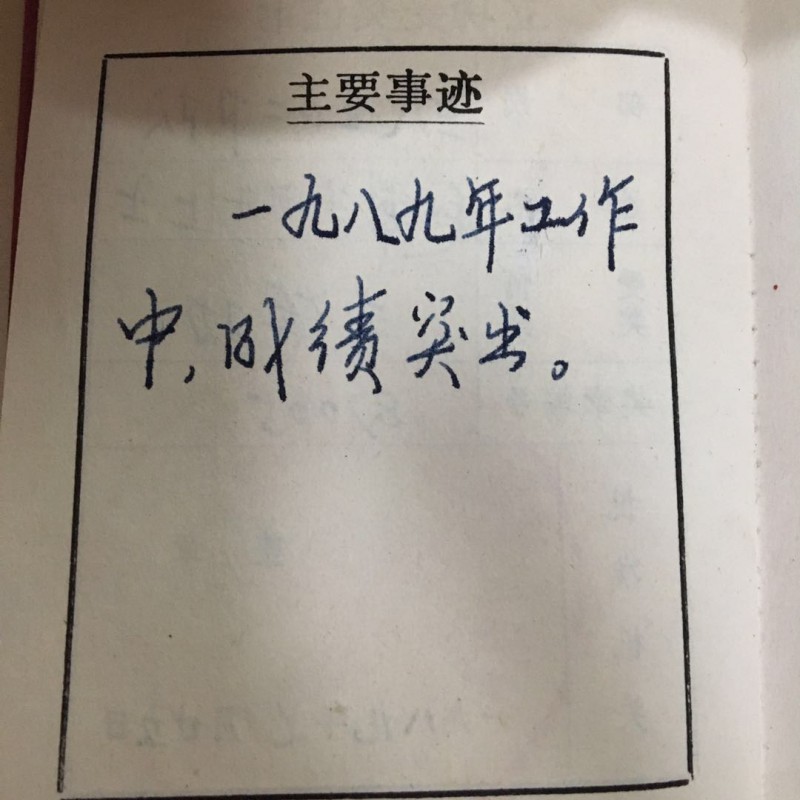 主要事迹
一九八九年工作
中，成绩突出。